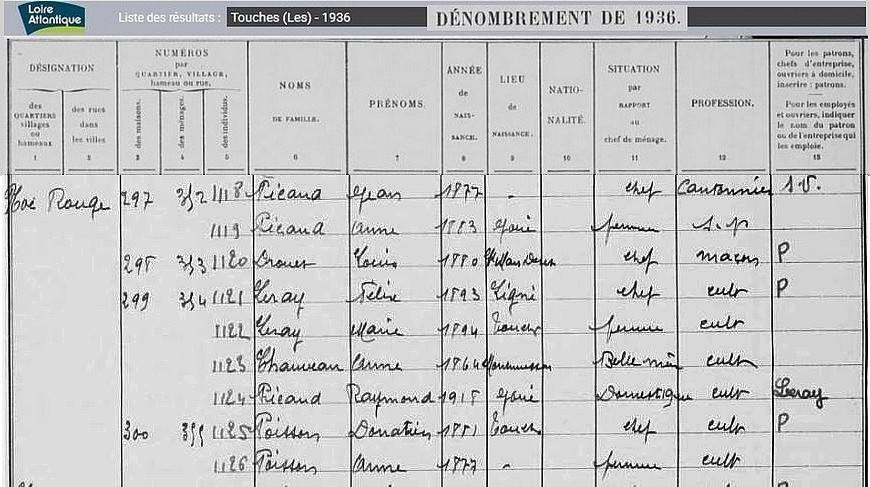 Loire Atlantique
Liste des résultats : Touches (Les) - 1936
DÉNOMBREMENT DE 1936.
DÉSIGNATION
NUMÉROS par QUARTIER, VILLAGE, hameau ou rue.
NOMS DE FAMILLE.
PRÉNOMS.
ANNÉE de NAISSANCE.
LIEU de NAISSANCE.
NATIO-NALITÉ.
SITUATION par RAPPORT au chef de ménage.
PROFESSION.
Pour les patrons, chefs d'entreprise, ouvriers à domicile, inscrire : patrons.
Pour les employés et ouvriers, indiquer le nom du patron ou de l'entreprise qui les emploie.
des QUARTIERS villages ou hameaux
des rues dans les villes
des maisons.
des ménages.
des individus.
1 2 3 4 5 6 7 8 9 10 11 12 13
Rouge 297 352 1118 Picaud Jean 1877 - chef Cantonnier S.V.
1119 Picaud Anne 1883 Joué femme S.P
298 353 1120 Drouet Louis 1880 chef maçon P
299 354 1121 Leray Félix 1893 Ligné chef cult P
1122 Leray Marie 1894 Touches femme cult
1123 Chauveau Anne 1864 Belle mère cult
1124 Picaud Raymond 1918 Joué Domestique cult Leray
300 355 1125 Poisson Donatien 1881 Touches chef cult P
1126 Poisson Anne 1877 - femme cult